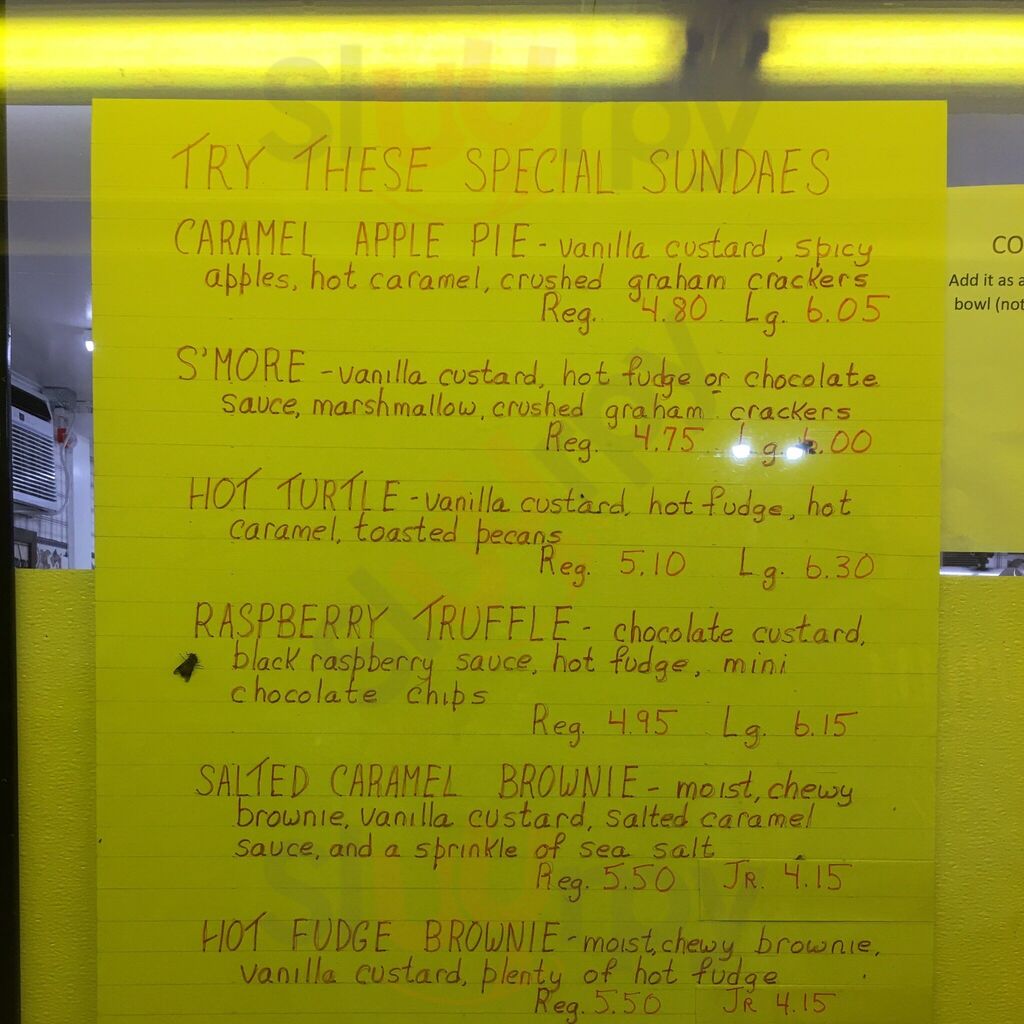 TRY THESE SPECIAL SUNDAES
CARAMEL APPLE PIE - vanilla custard, spicy
apples, hot caramel, crushed graham crackers
Reg. 4.80 Lg. 6.05
S'MORE - vanilla custard, hot fudge or chocolate
sauce, marshmallow, crushed graham crackers
Reg. 4.75 Lg. 6.00
HOT TURTLE - vanilla custard, hot fudge, hot
caramel, toasted pecans
Reg. 5.10 Lg. 6.30
RASPBERRY TRUFFLE - chocolate custard,
black raspberry sauce, hot fudge, mini
chocolate chips
Reg. 4.95 Lg. 6.15
SALTED CARAMEL BROWNIE - moist, chewy
brownie, vanilla custard, salted caramel
sauce, and a sprinkle of sea salt
Reg. 5.50 JR. 4.15
HOT FUDGE BROWNIE - moist, chewy brownie,
vanilla custard, plenty of hot fudge
Reg. 5.50 JR 4.15
CO
Add it as a
bowl (not
Sluurpy
Sluurpy
Sluurpy